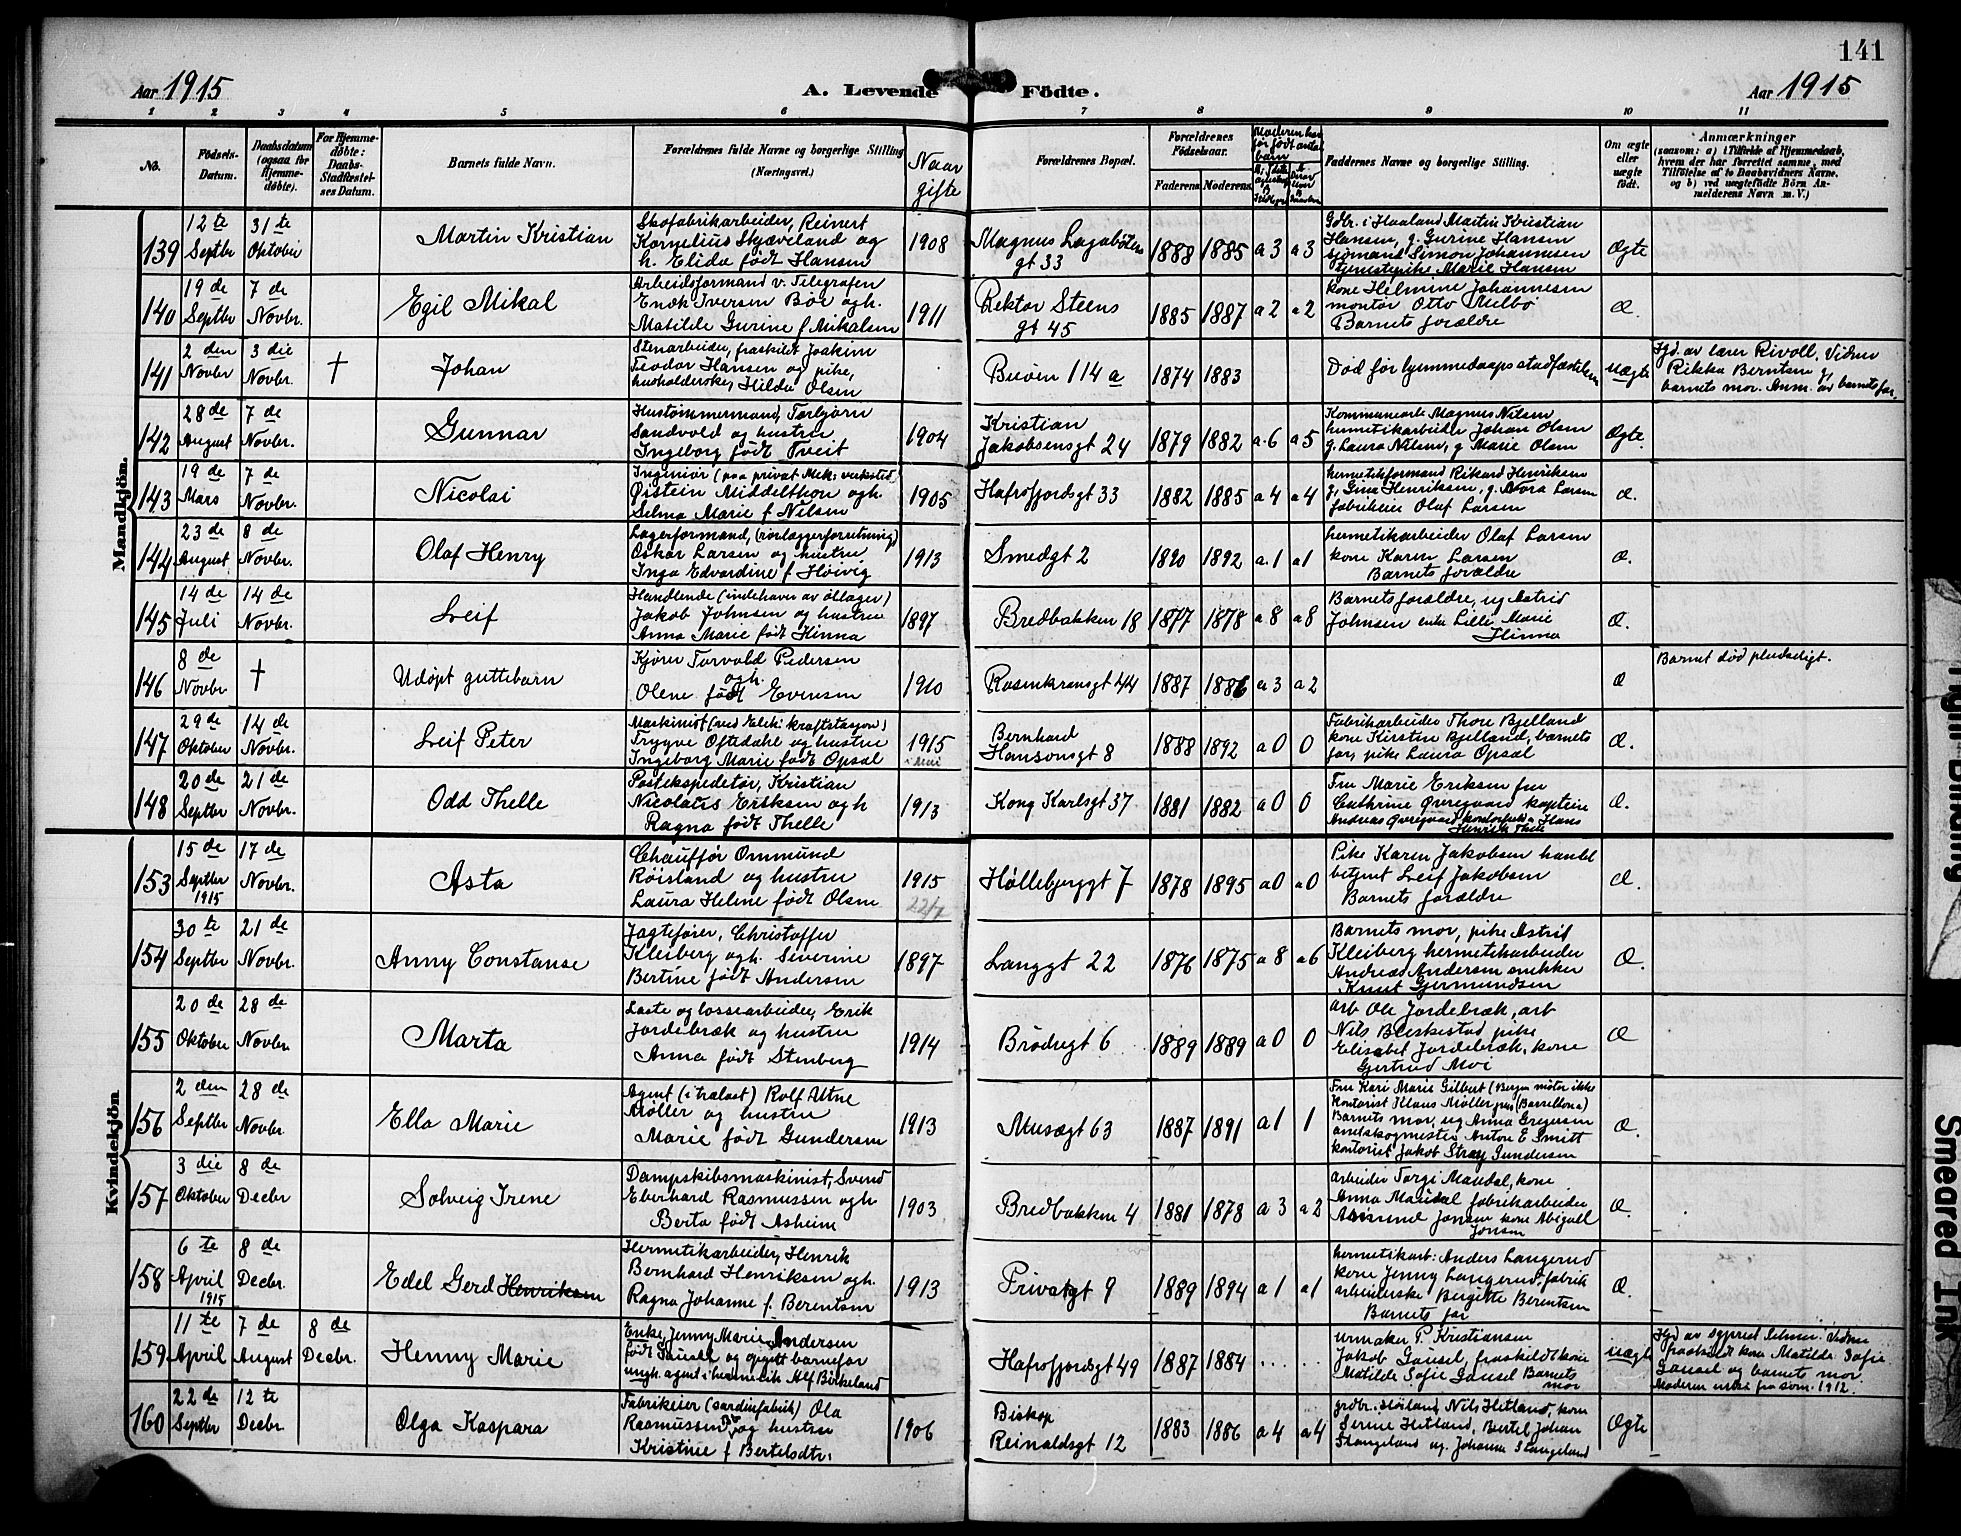 141
Aar 1915
A. Levende Födte.
Aar 1915
1 2 3 4 5 6 7 8 9 10 11
No.
Födsels-Datum.
Daabsdatum (ogsaa for Hjemme-döbte).
For Hjemme-döbte: Daabs-Stadfæstel-ses Datum.
Barnets fulde Navn.
Forældrenes fulde Navne og borgerlige Stilling (Næringsvei.)
Naar gifte
Forældrenes Bopæl.
Forældrenes Födselsaar.
Faderens. Moderens.
Moderen har før født antal barn
Faddernes Navne og borgerlige Stilling.
Om ægte eller uægte födt.
Anmærkninger
(saasom: a) i Tilfælde af Hjemmedaab,
hvem der har forrettet samme, med
Tilföielse af to Daabsvidners Navne.
og b) ved uægtefödte Börn An-
melderens Navn m. V.)
Mandkjön.
139 12te Septbr 31te Oktober
Martin Kristian
Skofabrikarbeider, Reinert
Kornelius Skjæveland og
h. Elida født Hansen
1908
Magnus Lagabøters
gt 33
1888 1885 a 3 a 3
Gdbr. i Haaland Martin Kristian
Hansen, g. Gurine Hansen
sjømand Simon Johannesen
tjenestepike Marie Hansen
Ægte
140 19de Septbr 7de Novbr.
Egil Mikal
Arbeidsformand v. Telegrafen
Enok Iversen Bøe og h.
Matilde Gurine f Mikalsen
1911
Rektor Steens
gt 45
1885 1887 a 2 a 2
kone Helmine Johannesen
montør Otto Melbø
Barnets forældre
Æ.
141 2den Novbr 3die Novbr. †
Johan
Stenarbeider, fraskilt Joakim
Teodor Hansen og pike,
husholderske, Hilda Olsen
Buøen 114 a
1874 1883
Død før hjemmedaapsstadfæstelsen
uægte
Hjd. av lærer Rivoll. Vidner
Rikka Berntsen og
barnets mor. Anm. av barnets far.
142 28de August 7de Novbr.
Gunnar
Hustømmermand, Torbjørn
Sandvold og hustru
Ingeborg født Tveit
1904
Kristian
Jakobsensgt 24
1879 1882 a. 6 a 5
Kommunearb Magnus Nilsen
hermetikarbeider Johan Olsen
g. Laura Nilsen, g Marie Olsen
Ægte.
143 19de Mars 7de Novbr.
Nicolai
Ingeniør (paa privat Mek: verksted)
Øistein Middelthon og h.
Selma Marie f Nilsen
1905
Hafrsfjordsgt 33
1882 1885 a 4 a 4
hermetikformand Rikard Henriksen
g. Gina Henriksen, g. Nora Larsen
fabrikeier Olaf Larsen
Æ.
144 23de August 8de Novbr.
Olaf Henry
Lagerformand, (rørlæggerforretning)
Oskar Larsen og hustru
Inga Edvardine f Høivig
1913
Smedgt 2
1890 1892 a. 1 a 1
hermetikarbeider Olaf Larsen
kone Karen Larsen
Barnets forældre
Æ.
145 14de Juli 14de Novbr.
Leif
Handlende (indehaver av øllager)
Jakob Johnsen og hustru
Anna Marie født Hinna
1897
Bredbakken 18
1877 1878 a 8 a 8
Barnets forældre, ug Astrid
Johnsen enke Lille Marie
Hinna
Æ.
146 8de Novbr †
Udøpt guttebarn
Kjører Torvald Pedersen
og h.
Olene født Evensen
1910
Rosenkransgt 44
1887 1886 a 3 a 2
Æ
Barnet død pludseligt.
147 29de Oktober 14de Novbr.
Leif Peter
Maskinist (ved Elek: kraftstasjon)
Trygve Oftedahl og hustru
Ingeborg Marie født Opsal
1915
i Mai
Bernhard
Hansonsgt 8
1888 1892 a 0 0
Fabrikarbeider Thore Bjelland
kone Kirsten Bjelland, barnets
far, pike Laura Opsal
Æ.
148 20de Septbr 21de Novbr.
Odd Thelle
Postekspeditør, Kristian
Nicolaus Eriksen og h
Ragna født Thelle
1913
Kong Karlsgt 37
1881 1882 a 0 0
Fru Marie Eriksen fru
Cathrine Øvregaard kaptein
Andreas Øvregaard, Hans
Henrik Thelle
Æ.
Kvindekjön
153 15de Septbr 1915 17de Novbr.
Asta
Chauffør Ommund
Røisland og hustru
Laura Helene født Olsen
1915
22/7
Høllebjerggt 7
1878 1895 a 0 a 0
Pike Karen Jakobsen handels
betjent Leif Jakobsen
Barnets forældre
Æ.
154 30te Septbr 21de Novbr.
Anny Constanse
Jagtefører, Christoffer
Kleiberg og h. Severine
Bertine født Andersen
1897
Langgt 22
1876 1875 a 8 a 6
Barnets mor, pike Astrid
Kleiberg hermetikarbeider
Andreas Andersen snekker
Knut Gjermundsen
Æ.
155 20de Oktober 28de Novbr
Marta
Laste og lossearbeider, Erik
Jordebræk og hustru
Anna født Stenberg
1914
Brødregt 6
1889 1889 a 0 0
Arb Ole Jordebræk, arb
Nils Bleskestad pike
Elisabet Jordebræk, kone
Gjertrud Moi
Æ
156 2den Septbr 28de Novbr
Ella Marie
Agent (i trælast) Rolf Utne
Møller og hustru
Marie født Gundersen
1913
Musægt 63
1887 1891 a 1 1
Fru Kari Marie Gilbert (Bergen møter ikke
kontorist Klaus Møller
Barnets mor, ug Anna Gregersen
amtskogmester Anton E Smitt
kontorist Jakob Stray Gundersen
Æ.
157 3die Oktober 8de Decbr
Solveig Irene
Dampskibsmaskinist, Svend
Eberhard Rasmussen og h
Berta født Asheim
1903
Bredbakken 4
1881 1878 a 3 a 2
arbeider Torgi Mandal, kone
Anna Mandal fabrikarbeider
Jonsen kone Abigall
Jonsen
Æ.
158 6te April 1915 8de Decbr.
Edel Gerd Henriksen
Hermetikarbeider, Henrik
Bernhard Henriksen og h.
Ragna Johanne f. Berentsen
1913
Privatgt 9
1889 1894 a 1 a 1
hermetikarb: Anders Langerud
kone Jenny Langerud, fabrik
arbeiderske Bergitte Berentsen
Barnets far
Æ.
159 11te April 7de August 8de Decbr.
Henny Marie
Enke, Jenny Marie Andersen
født Gausel og opgitt barnefar
ungk. agent i hermetik Alf Birkeland
Hafrsfjordsgt 49
1887 1884 . . . . . . .
urmaker P. Kristiansen
Jakob Gausel, fraskildt kone
Matilde Sofie Gausel Barnets
mor
uægte
Hjd av sogneprest Selmer. Vidner
fraskildt kone Matilde Sofie
Gausel og barnets mor.
Moderen enke fra som. 1912.
160 22de Septbr 12te Decbr.
Olga Kaspara
Fabrikeier (sardinfabrik) Ola
Rasmussen og hustru
Kristine f Bertelsdtr.
1906
Biskop
Reinaldsgt 12
1883 1886 a 4 a 4
grdbr. Høiland Nils Hetland, kone
Serine Hetland, Bertel Johan
Stangeland ug. Johanna Stangeland
Ægte
Tight Binding
Smeared Ink